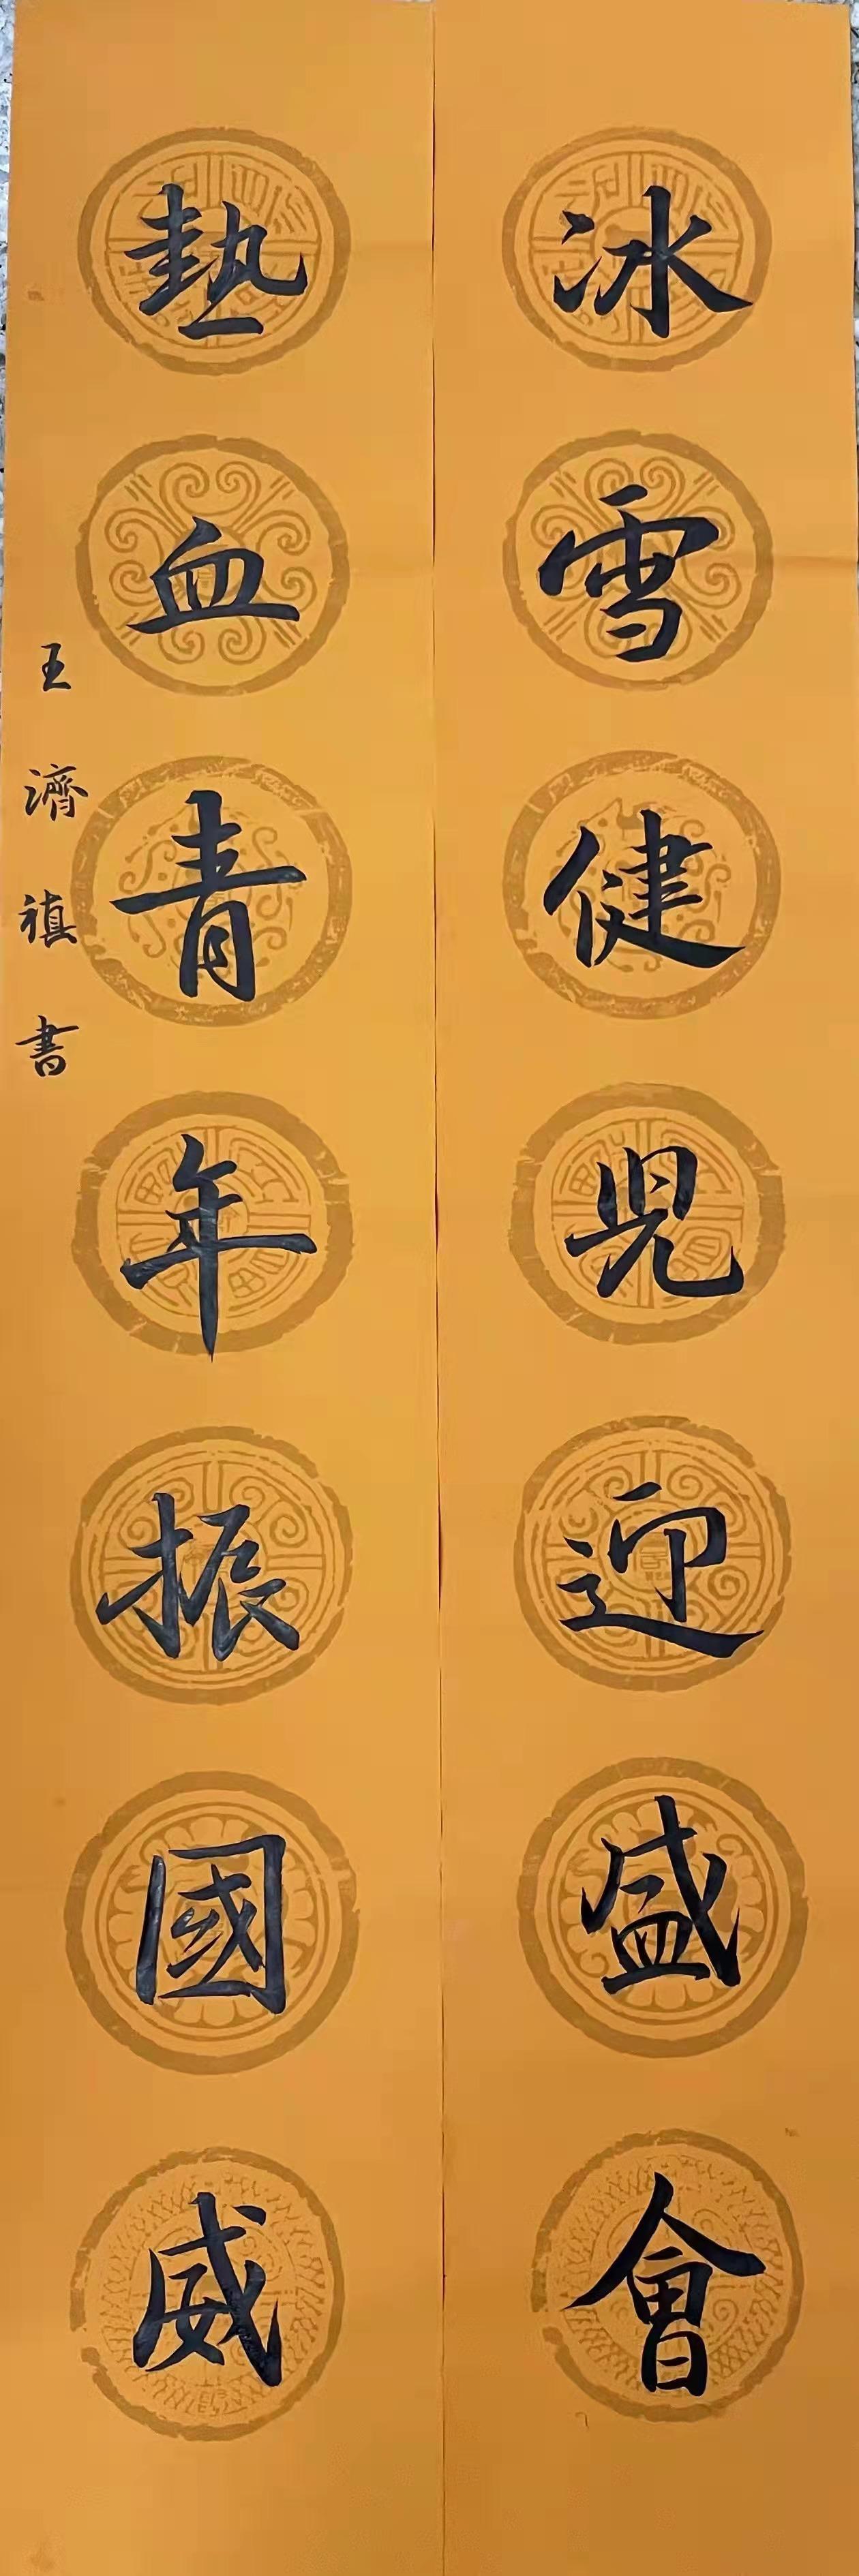 冰雪健兒迎盛會
熱血青年振國威
王濟禛書